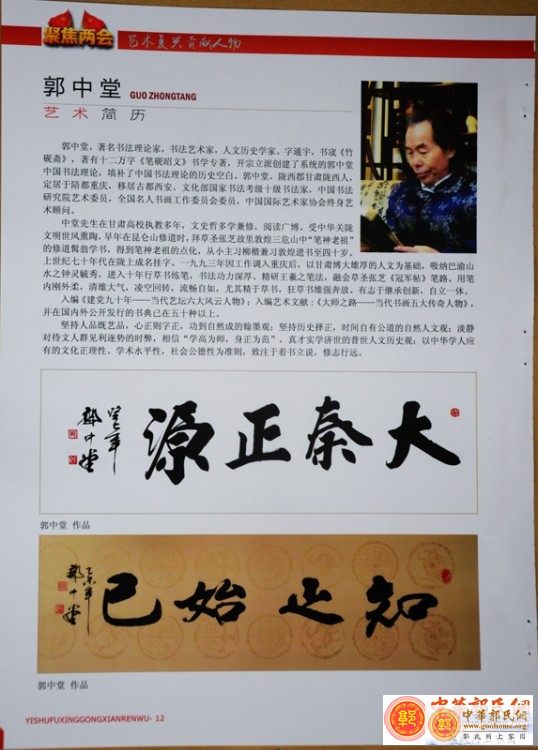 聚焦两会
艺术复兴贡献人物
郭中堂 GUO ZHONGTANG
艺术简历
郭中堂，著名书法理论家、书法艺术家，人文历史学家。字通宇，书宬《竹
砚斋》，著有十二万字《笔砚昭文》书学专著，开宗立派创建了系统的郭中堂
中国书法理论，填补了中国书法理论的历史空白。郭中堂，陇西郡甘肃陇西人，
定居于陪都重庆，移居古都西安。文化部国家书法考级十级书法家，中国书法
研究院艺术委员，全国名人书画工作委员会委员，中国国际艺术家协会终身艺
术顾问。
中堂先生在甘肃高校执教多年，文史哲多学兼修，阅读广博。受中华关陇
文明世风熏陶，早年在昆仑山修道时，拜草圣张芝故里敦煌三危山中“笔神老祖”
的修道髯翁学书，得到笔神老祖的点化，从小主习柳楷兼习敦煌遗书至四十岁。
上世纪七十年代在陇上成名挂字。一九九三年因工作调入重庆后，以甘肃博大雄厚的人文为基础，吸纳巴渝山
水之钟灵毓秀，进入十年行草书练笔，书法功力深厚。精研王羲之笔法，融会草圣张芝《冠军帖》笔路。用笔
内刚外柔，清雄大气，凌空回转，流畅自如，尤其精于草书，狂草书雄强奔放。有志于继承创新，自立一体。
入编《建党九十年——当代艺坛六大风云人物》；入编艺术文献:《大师之路——当代书画五大传奇人物》，
并在国内外公开发行的书典已在五十种以上。
坚持人品既艺品，心正则字正，功到自然成的翰墨观；坚持历史择正，时间自有公道的自然人文观；淡静
对待文人群见利逐势的时弊，相信“学高为师，身正为范”，真才实学济世的普世人文历史观；以中华学人应
有的文化正理性、学术水平性，社会公德性为准则，致注于着书立说，修志行远。
大秦正源
癸巳年
郭中堂
郭中堂 作品
知止始已
乙未年
郭中堂
郭中堂 作品
YISHUFUXINGGONGXIANRENWU- 12
中华郭氏网
中華郭氏網
www.guohome.org
郭氏网上家园